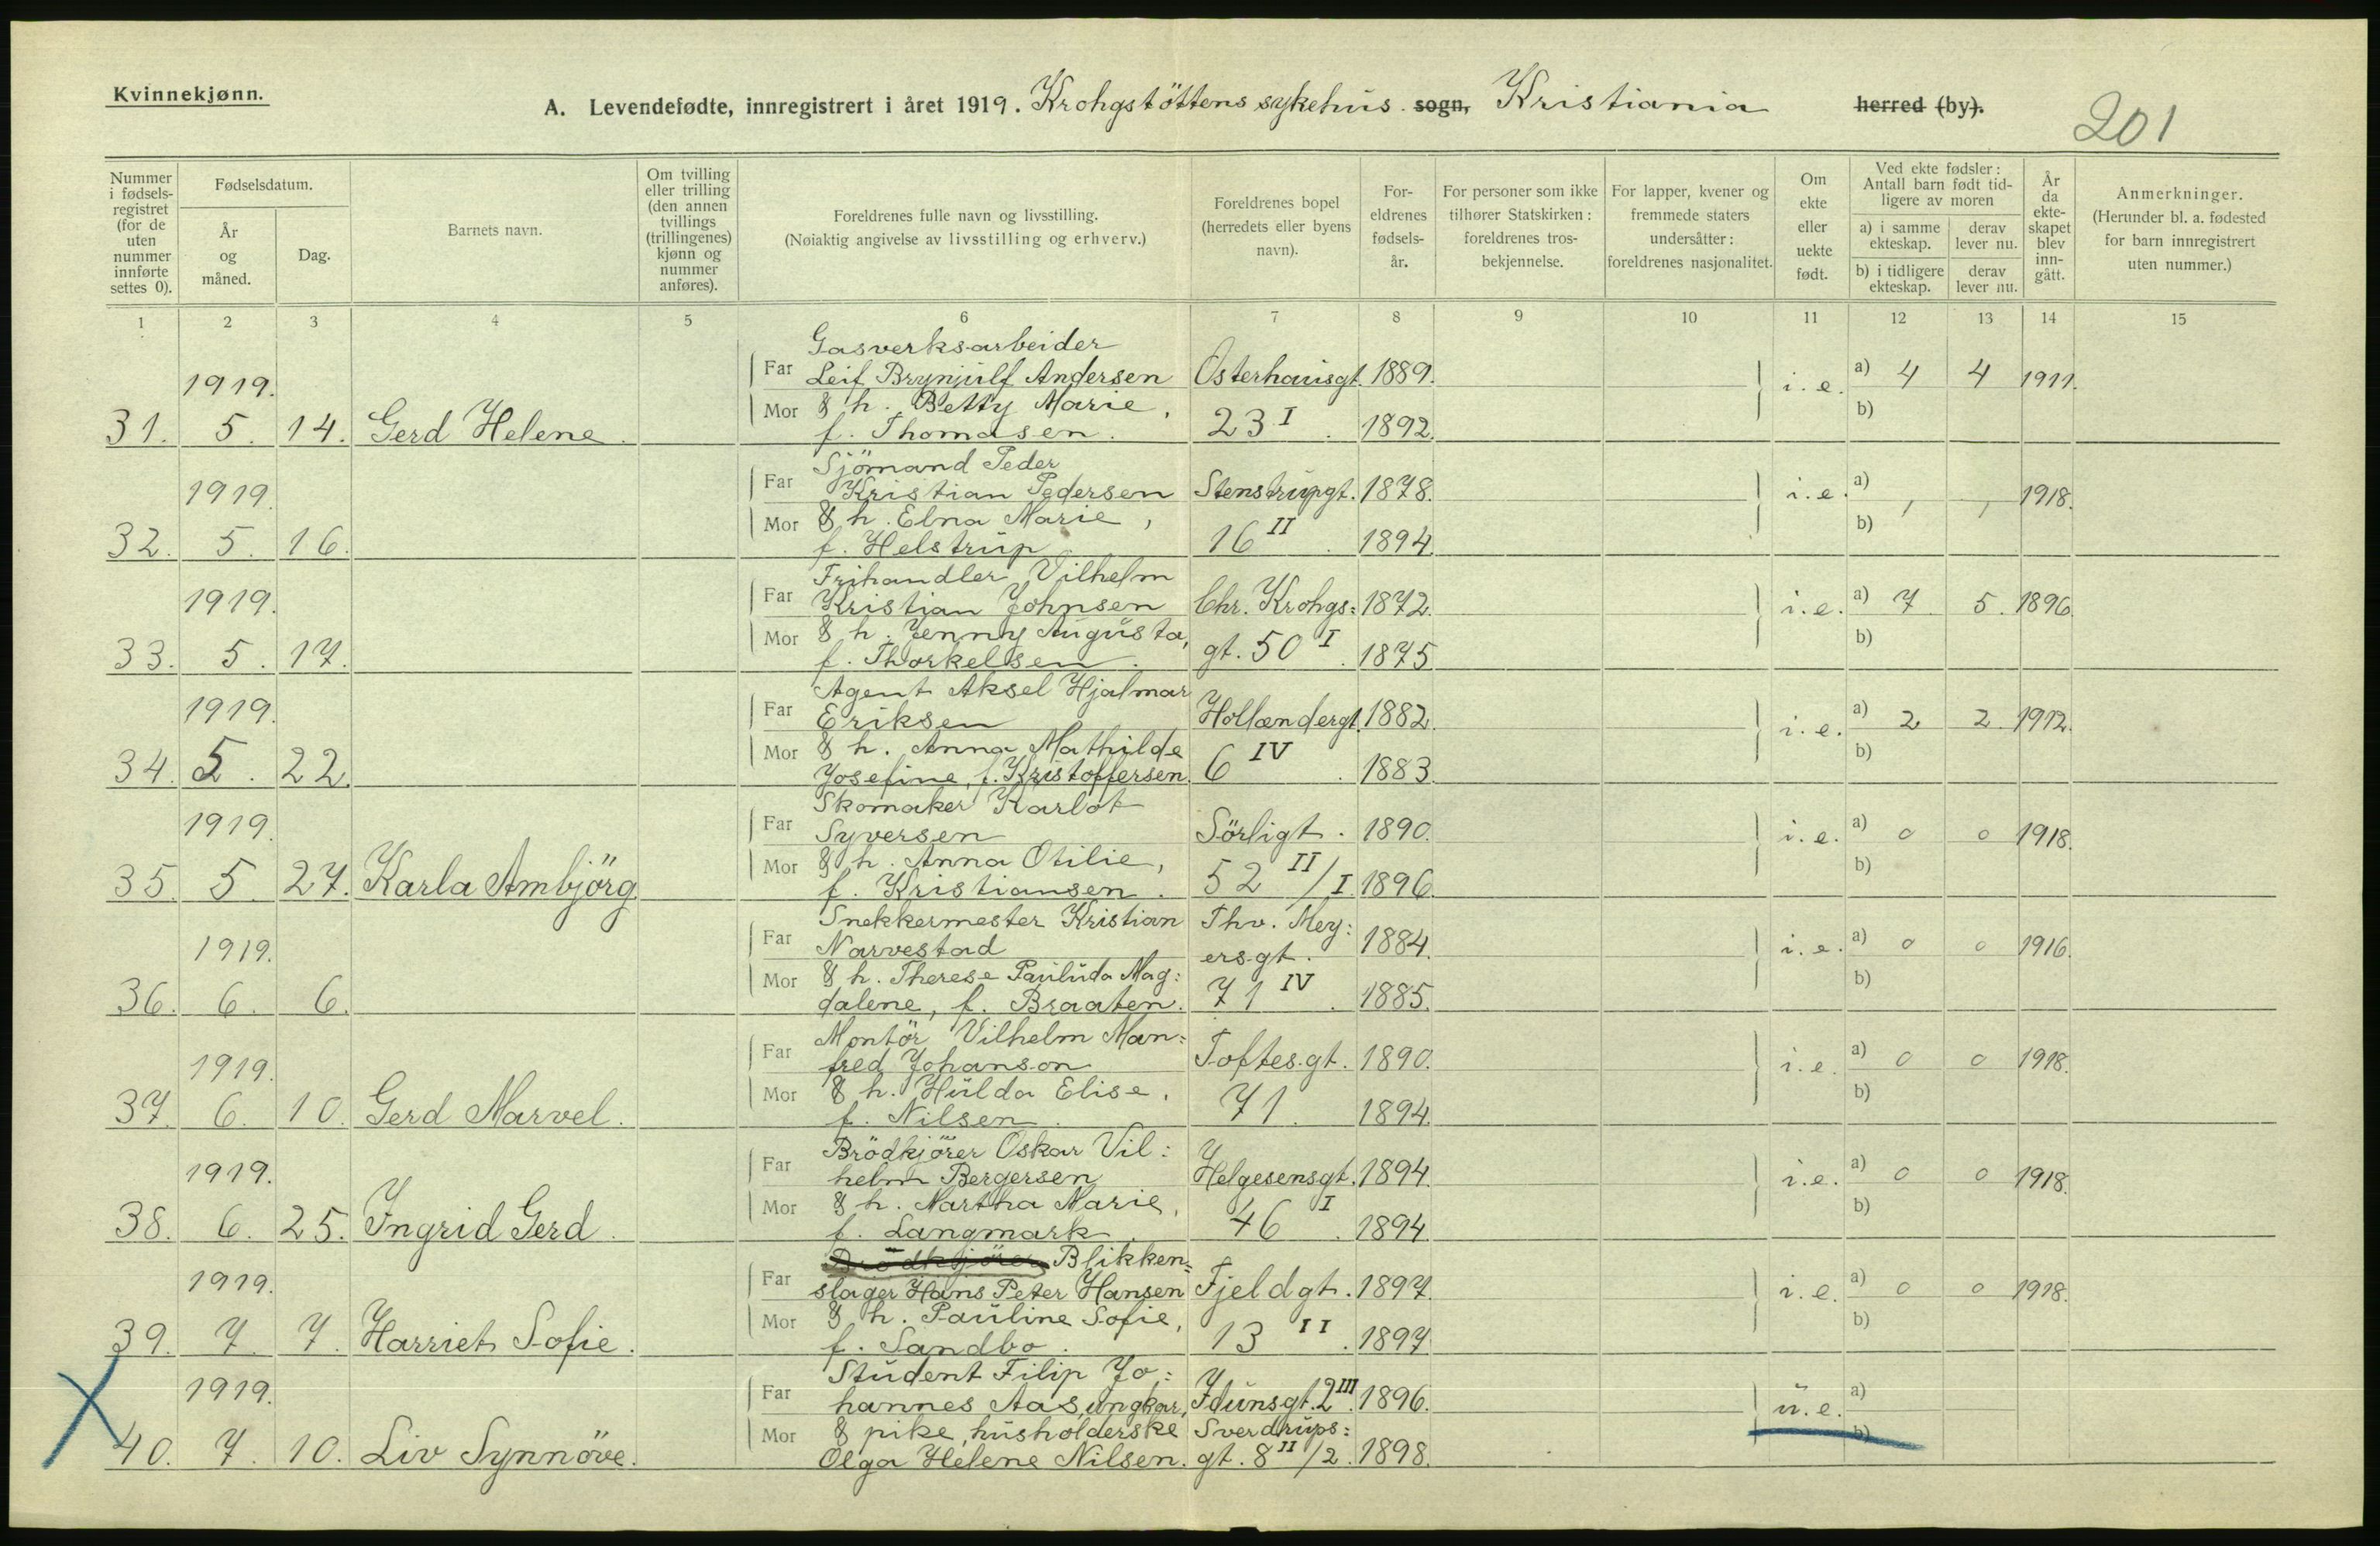 Kvinnekjønn.
A. Levendefødte, innregistrert i året 1919. Krohgstöttens sykehus. sogn, Kristiania herred (by).
201
Nummer i fødsels-registret (for de uten nummer innførte settes 0).
Fødselsdatum.
År og måned.
Dag.
Barnets navn.
Om tvilling eller trilling (den annen tvillings (trillingenes) kjønn og nummer anføres).
Foreldrenes fulle navn og livsstilling.
(Nøiaktig angivelse av livsstilling og erhverv.)
Foreldrenes bopel (herredets eller byens navn).
For-eldrenes fødsels-år.
For personer som ikke tilhører Statskirken: foreldrenes tros-bekjennelse.
For lapper, kvener og fremmede staters undersåtter: foreldrenes nasjonalitet.
Om ekte eller uekte født.
Ved ekte fødsler: Antall barn født tid-ligere av moren
a) i samme ekteskap.
derav lever nu.
b) i tidligere ekteskap.
derav lever nu.
År da ekte-skapet blev inn-gått.
Anmerkninger.
(Herunder bl. a. fødested for barn innregistrert uten nummer.)
1 2 3 4 5 6 7 8 9 10 11 12 13 14 15
Gasverksarbeider
1919. Far Leif Brynjulf Andersen Osterhausgt. 1889. i. e. a) 4 4 1911.
Mor & h. Betty Marie, b)
31. 5. 14. Gerd Helene. f. Thomasen. 23 I. 1892.
Sjömand Peder
1919. Far Kristian Pedersen Stenstrupgt. 1878. i. e. a) , , 1918.
Mor & h. Elna Marie, b)
32. 5. 16. f. Helstrup 16 II. 1894.
Frihandler Vilhelm
1919. Far Kristian Johnsen Chr. Krohgs: 1872. i. e. a) 7 5. 1896.
Mor & h. Jenny Augusta, b)
33. 5. 17. f. Thorkelsen. gt. 50 I. 1875
Agent Aksel Hjalmar
1919. Far Eriksen Hollændergt. 1882. i. e. a) 2 2 1912.
Mor & h. Anna Mathilde b)
34. 5. 22. Josefine, f. Kristoffersen. 6 IV. 1883
Skomaker Karlot
1919. Far Syversen Sörligt. 1890. i. e. a) 0 0 1918.
Mor & h. Anna Otilie, b)
35. 5. 27. Karla Ambjörg. f. Kristiansen. 52 II/I 1896.
Snekkermester Kristian Thv. Mey:
1919. Far Narvestad ersgt. 1884. i. e. a) 0 0 1916.
Mor & h. Therese Paulida Mag: b)
36. 6. 6. dalene, f. Braaten. 71 IV. 1885.
Montör Vilhelm Man:
1919. Far fred Johanson Toftes.gt. 1890. i. e. a) 0 0 1918.
Mor & h. Hulda Elise, b)
37. 6. 10. Gerd Marvel. f. Nilsen. 71. 1894.
Brödkjörer Oskar Vil:
1919. Far helm Bergersen Helgesensgt. 1894. i. e. a) 0 0 1918.
Mor & h. Martha Marie, b)
38. 6. 25. Ingrid Gerd. f. Langmark. 46 I. 1894.
Brödkjörer Blikken=
1919. Far slager Hans Peter Hansen Fjeldgt. 1897. i. e. a) 0 0 1918.
Mor & h. Pauline Sofie, b)
39. 7. 7. Harriet Sofie. f. Sandbo. 13 II. 1897.
Student Filip Jo:
1919. Far hannes Aas, ungkar, Idunsgt. 2 III. 1896. u. e. a)
Mor & pike, husholderske Sverdrups: b)
40. 7. 10. Liv Synnöve. Olga Helene Nilsen. gt. 8 II/2. 1898.